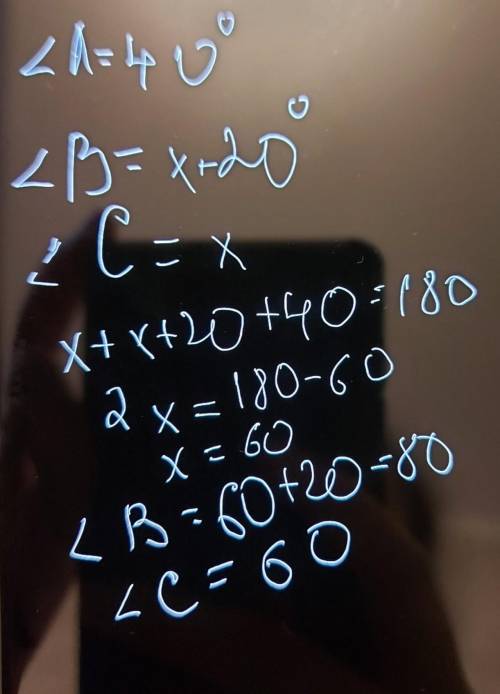 ∠A=40°
∠B=x+20°
∠C=x
x+x+20+40=180
2x=180-60
x=60
∠B=60+20=80
∠C=60